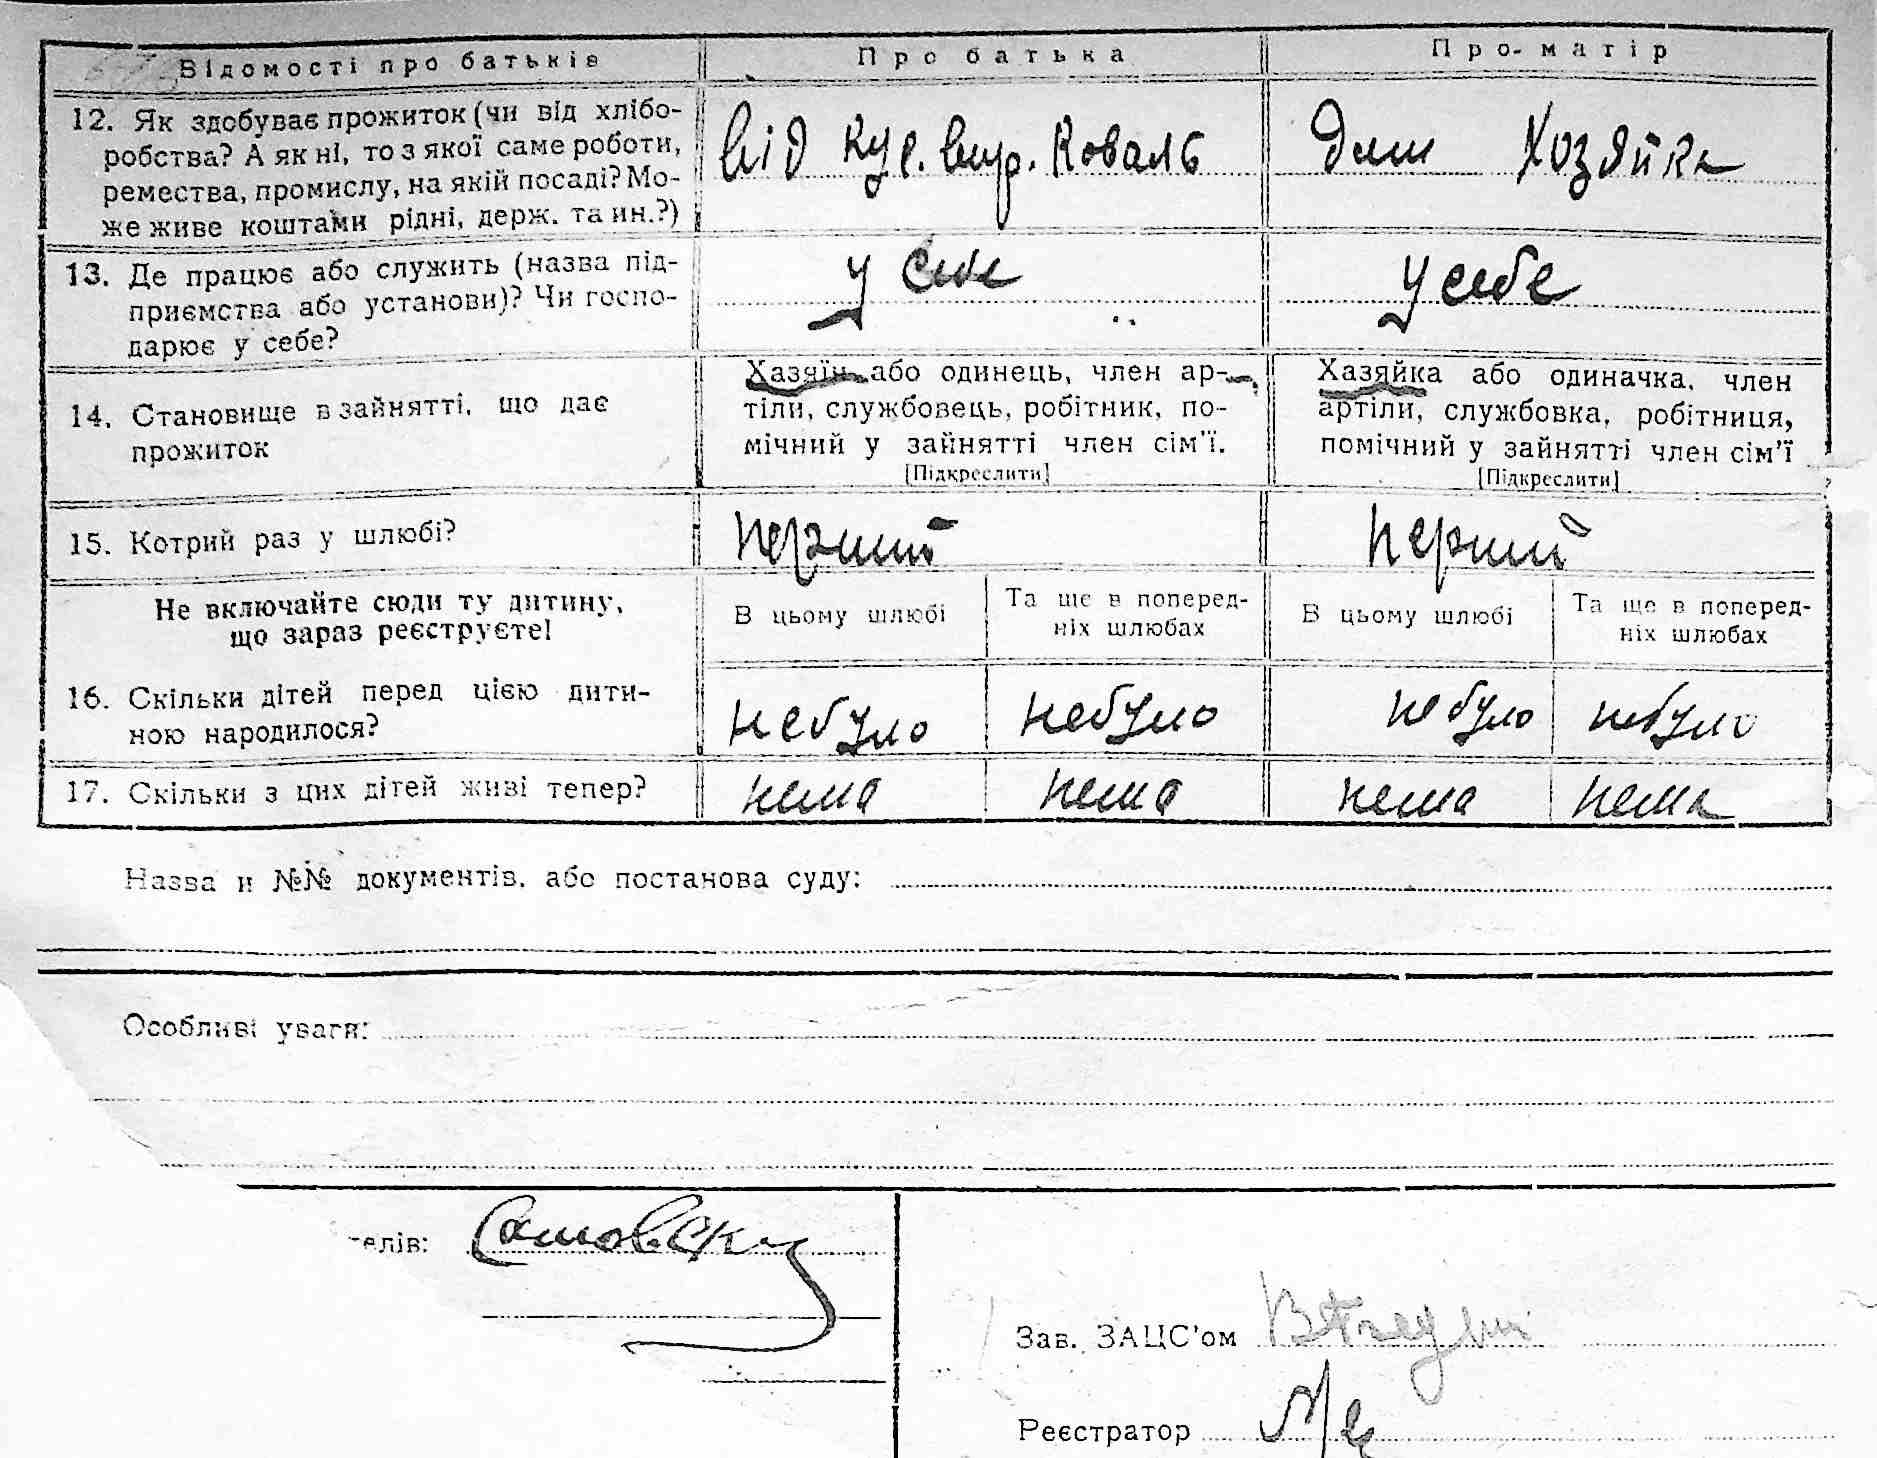 Відомості про батьків
Про батька
Про матір
12. Як здобуває прожиток (чи від хлібо-
робства? А як ні, то з якої саме роботи,
ремества, промислу, на якій посаді? Мо-
же живе коштами рідні, держ. та ин.?)
від кус. вир. Коваль
Дом Хозяйка
13. Де працює або служить (назва під-
приємства або установи)? Чи госпо-
дарює у себе?
у себе
у себе
14. Становище в зайнятті, що дає
прожиток
Хазяїн або одинець, член ар-
тіли, службовець, робітник, по-
мічний у зайнятті член сім'ї.
[Підкреслити]
Хазяйка або одиначка, член
артіли, службовка, робітниця,
помічний у зайнятті член сім'ї
[Підкреслити]
15. Котрий раз у шлюбі?
перший
перший
Не включайте сюди ту дитину,
що зараз реєструєте!
В цьому шлюбі
Та ще в поперед-
ніх шлюбах
В цьому шлюбі
Та ще в поперед-
ніх шлюбах
16. Скільки дітей перед цією дити-
ною народилося?
небуло
небуло
небуло
небуло
17. Скільки з цих дітей живі тепер?
нема
нема
нема
нема
Назва и №№ документів, або постанова суду:
Особливі уваги:
телів:
Зав. ЗАЦС'ом
Реєстратор